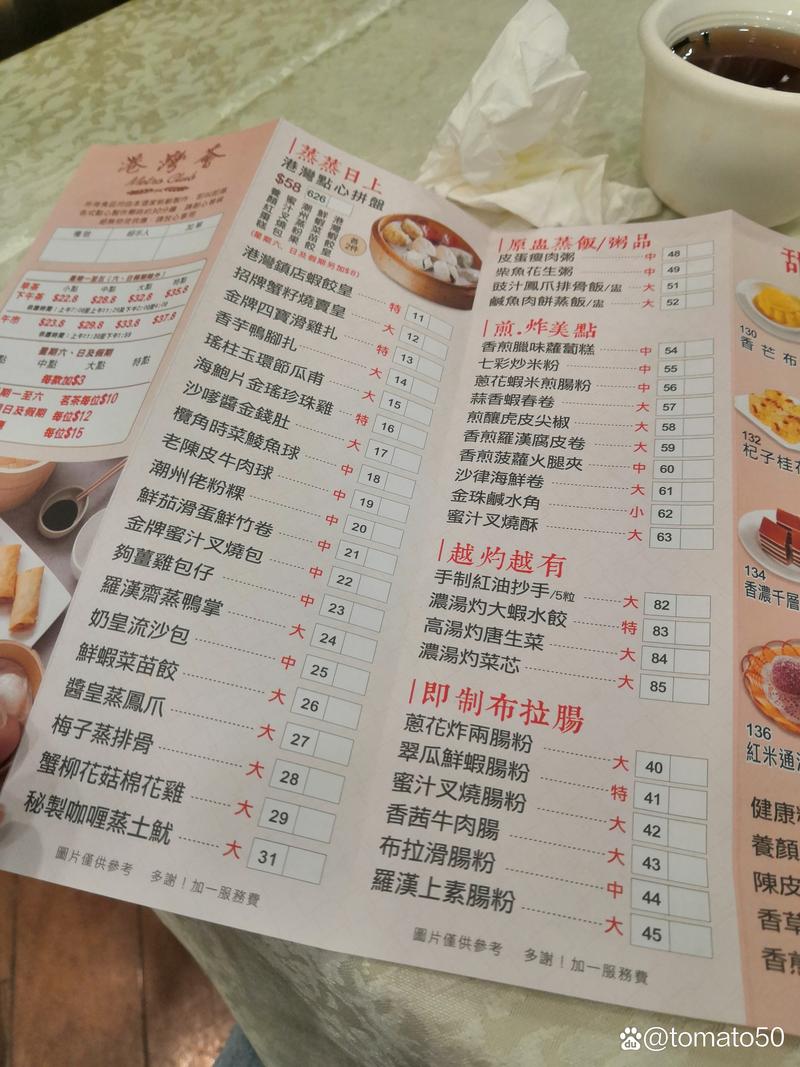 港灣薈
Metro Club
小點 中點 大點 特點
早茶
下午茶 $22.8 $28.8 $32.8 $35.8
午市 $23.8 $29.8 $33.8 $37.8
星期六、日及假期
中點 大點 特點
每款加$3
期一至六 茗茶每位$10
期日及假期 每位$12
每位$15
蒸蒸日上
港灣點心拼盤
$58 626
港灣蝦餃皇
鮮蝦菜苗餃
潮州蒸粉果
蜜汁叉燒包
養顏紅棗糕
各2件
(星期六、日及假期另加$8)
港灣鎮店蝦餃皇 特 11
招牌蟹籽燒賣皇 大 12
金牌四寶滑雞扎 特 13
香芋鴨腳扎 大 14
瑤柱玉環節瓜甫 大 15
海鮑片金瑤珍珠雞 特 16
沙嗲醬金錢肚 大 17
欖角時菜鯪魚球 中 18
老陳皮牛肉球 中 19
潮州佬粉粿 中 20
鮮茄滑蛋鮮竹卷 中 21
金牌蜜汁叉燒包 中 22
夠薑雞包仔 中 23
羅漢齋蒸鴨掌 大 24
奶皇流沙包 中 25
鮮蝦菜苗餃 大 26
醬皇蒸鳳爪 大 27
梅子蒸排骨 大 28
蟹柳花菇棉花雞 大 29
秘製咖喱蒸土魷 大 31
圖片僅供參考 多謝！加一服務費
原盅蒸飯/粥品
皮蛋瘦肉粥 中 48
柴魚花生粥 中 49
豉汁鳳爪排骨飯/盅 大 51
鹹魚肉餅蒸飯/盅 大 52
煎.炸美點
香煎臘味蘿蔔糕 中 54
七彩炒米粉 中 55
蔥花蝦米煎腸粉 中 56
蒜香蝦春卷 大 57
煎釀虎皮尖椒 大 58
香煎羅漢腐皮卷 大 59
香煎菠蘿火腿夾 中 60
沙律海鮮卷 大 61
金珠鹹水角 小 62
蜜汁叉燒酥 大 63
越灼越有
手制紅油抄手/5粒 大 82
濃湯灼大蝦水餃 特 83
高湯灼唐生菜 大 84
濃湯灼菜芯 大 85
即制布拉腸
蔥花炸兩腸粉 大 40
翠瓜鮮蝦腸粉 特 41
蜜汁叉燒腸粉 大 42
香茜牛肉腸 大 43
布拉滑腸粉 中 44
羅漢上素腸粉 大 45
圖片僅供參考 多謝！加一服務費
甜
130
香芒布
132
杞子桂花
134
香濃千層
136
紅米通
健康
養顏
陳皮
香草
香煎
@tomato50